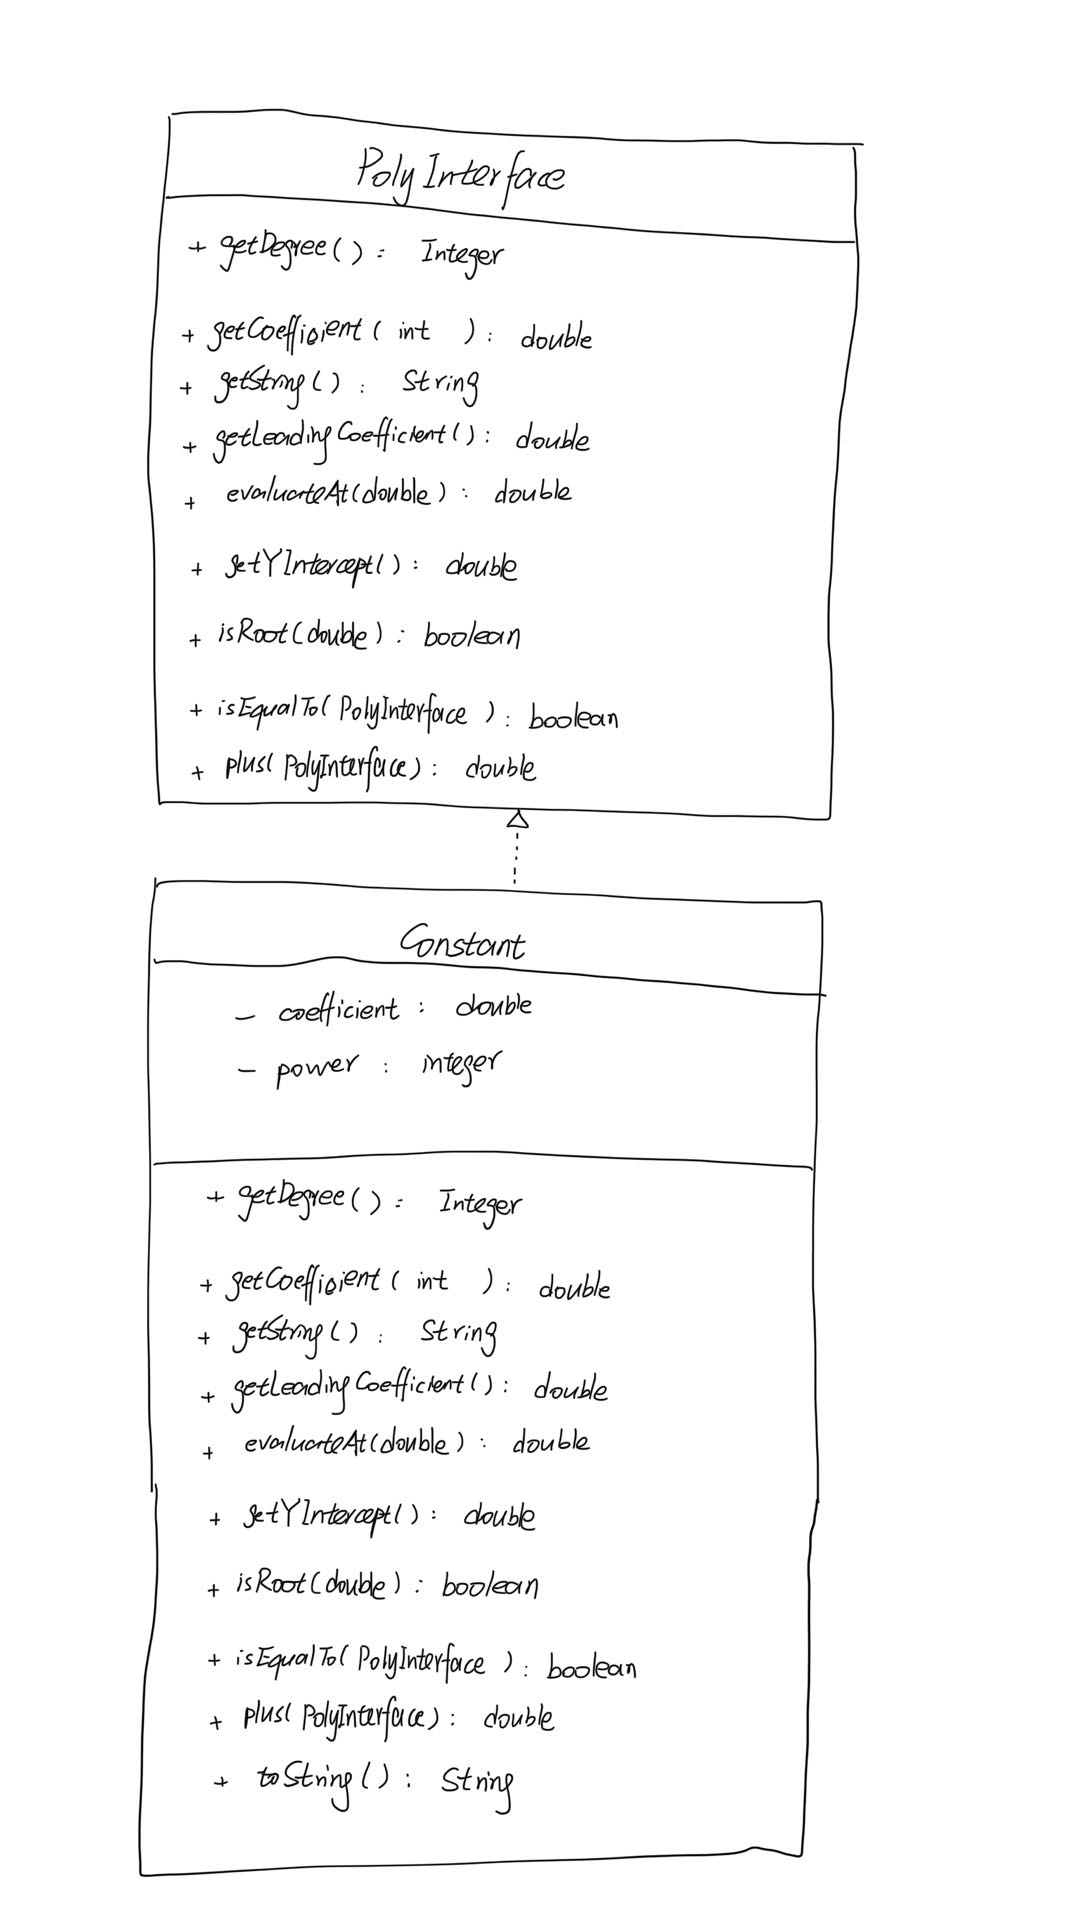 PolyInterface
+ getDegree() : Integer
+ getCoefficient( int ) : double
+ getString() : String
+ getLeadingCoefficient() : double
+ evaluateAt(double) : double
+ getYIntercept() : double
+ isRoot(double) : boolean
+ isEqualTo( PolyInterface ) : boolean
+ plus( PolyInterface) : double
Constant
- coefficient : double
- power : integer
+ getDegree() : Integer
+ getCoefficient( int ) : double
+ getString() : String
+ getLeadingCoefficient() : double
+ evaluateAt(double) : double
+ getYIntercept() : double
+ isRoot(double) : boolean
+ isEqualTo( PolyInterface ) : boolean
+ plus( PolyInterface) : double
+ toString() : String